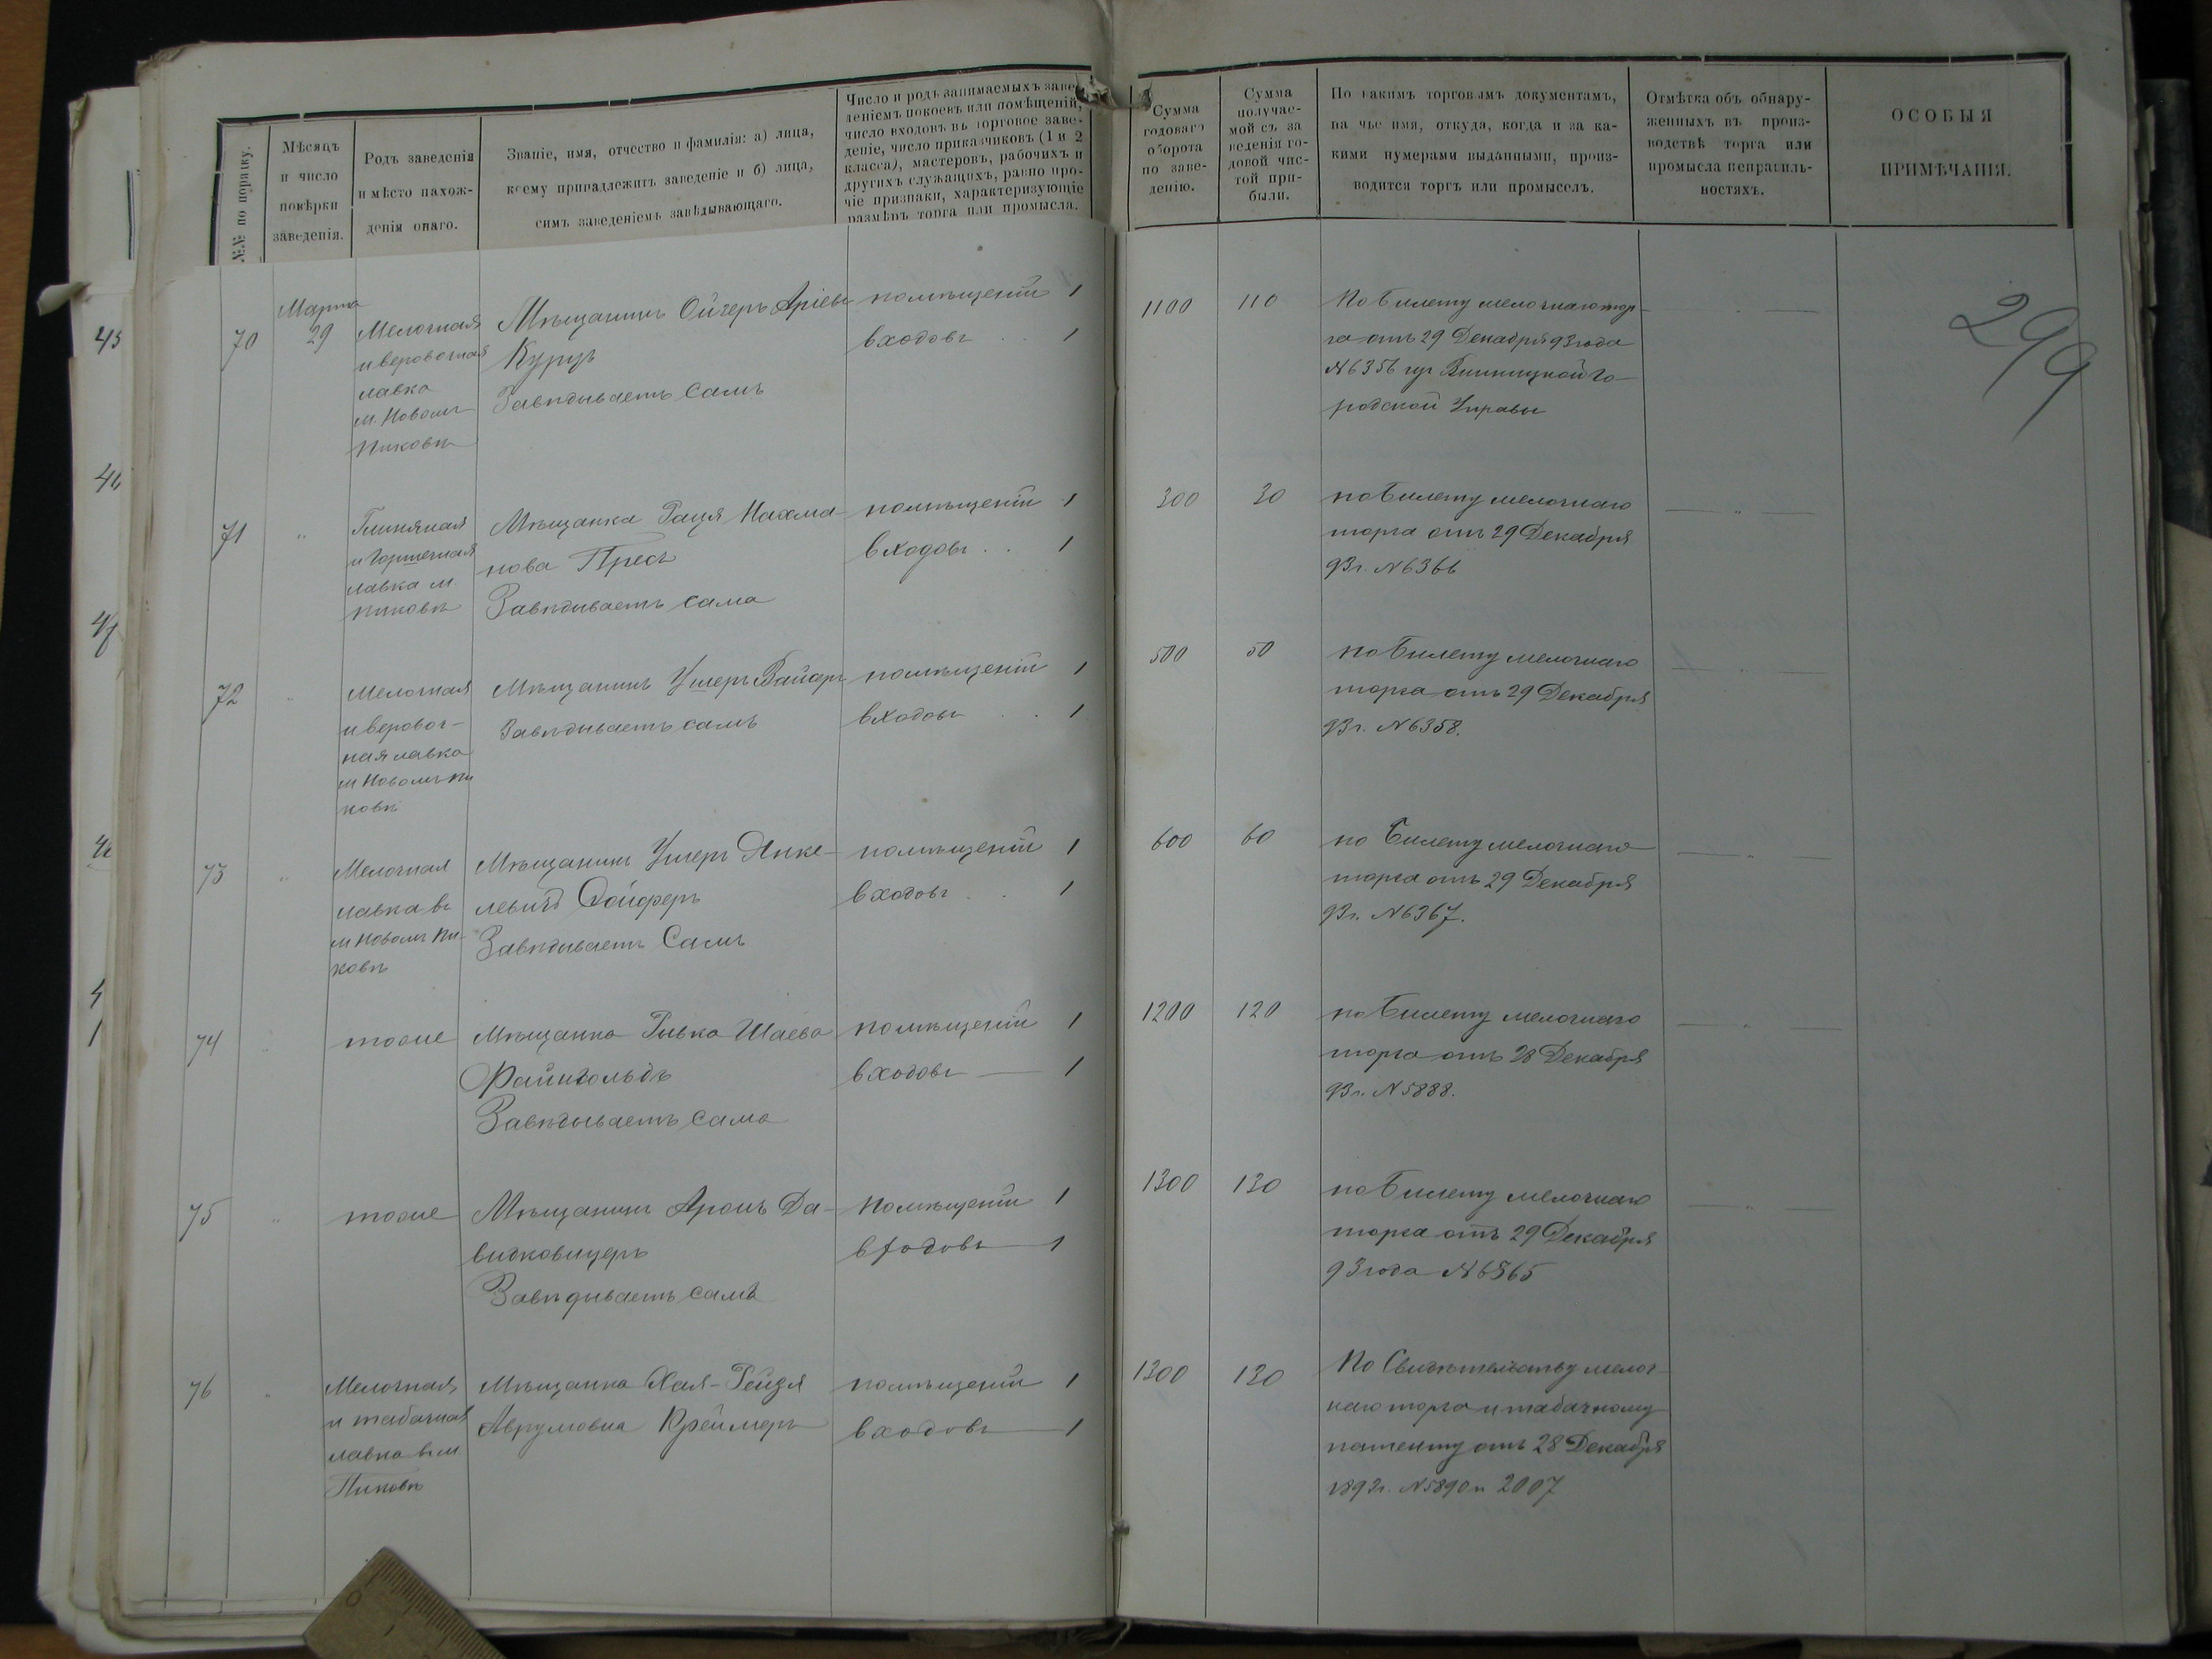 №№ по порядку.
Мѣсяцъ
и число
повѣрки
заведенія.
Родъ заведенія
и мѣсто нахож-
денія онаго.
Званіе, имя, отчество и фамилія: а) лица,
коему принадлежитъ заведеніе и б) лица,
симъ заведеніемъ завѣдывающаго.
Число и родъ занимаемыхъ заве-
деніемъ покоевъ или помѣщеній,
число входовъ въ торговое заве-
деніе, число приказчиковъ (1 и 2
класса), мастеровъ, рабочихъ и
другихъ служащихъ, равно про-
чіе признаки, характеризующіе
размѣръ торга или промысла.
Сумма
годоваго
оборота
по заве-
денію.
Сумма
получае-
мой съ за
веденія го-
довой чис-
той при-
были.
По какимъ торговымъ документамъ,
на чье имя, откуда, когда и за ка-
кими нумерами выданнымъ, произ-
водится торгъ или промыселъ.
Отмѣтка объ обнару-
женныхъ въ произ-
водствѣ торга или
промысла неправиль-
ностяхъ.
ОСОБЫЯ
ПРИМѢЧАНІЯ.
299
70
Марта
29
Мелочная
и веровочная
лавка
м. Новомъ
Пиковѣ
Мѣщанинъ Ойзеръ Аріевъ
Курцъ
Завѣдываетъ Самъ
помѣщеній 1
входовъ . . 1
1100
110
По билету мелочнаго тор-
га отъ 29 Декабря 93 года
№ 6356 изъ Винницкой Го-
родской Управы
71
"
Глиняная
и Горшечная
лавка м
Пиковѣ
Мѣщанка Рауя Нахма-
нова Пресъ
Завѣдываетъ сама
помѣщеній 1
входовъ . . 1
300
30
по билету мелочнаго
торга отъ 29 Декабря
93г. № 6366
72
"
Мелочная
и веровоч-
ная лавка
м Новомъ Пи
ковѣ
Мѣщанинъ Ушеръ Байеръ
Завѣдываетъ самъ
помѣщеній 1
входовъ . . 1
500
50
по билету мелочнаго
торга отъ 29 Декабря
93г. № 6358.
73
"
Мелочная
лавка въ
м Новомъ Пи-
ковѣ
Мѣщанинъ Ушеръ Янке-
левичъ Сойферъ
Завѣдываетъ Самъ
помѣщеній 1
входовъ . . 1
600
60
по билету мелочнаго
торга отъ 29 Декабря
93г. № 6367.
74
"
тоже
Мѣщанка Ривка Шаева
Файнгольдъ
Завѣдываетъ Сама
помѣщеній 1
входовъ — 1
1200
120
по билету мелочнаго
торга отъ 28 Декабря
93г. № 5888.
75
"
тоже
Мѣщанинъ Аронъ Да-
видковицеръ
Завѣдываетъ самъ
помѣщеній 1
входовъ — 1
1300
130
по билету мелочнаго
торга отъ 29 Декабря
93 года № 6365
76
"
Мелочная
и табачная
лавка въ м
Пиковѣ
Мѣщанка Хая-Рейзя
Аврумовна Креймеръ
помѣщеній 1
входовъ — 1
1300
130
По Свидѣтельству мелоч-
наго торга и табачному
патенту отъ 28 Декабря
1893г. № 5890 и 2007